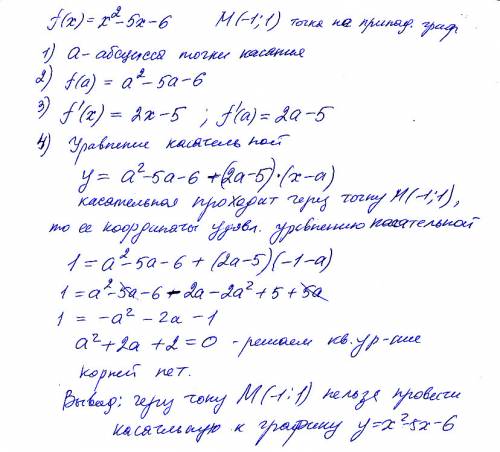 f(x) = x²-5x-6 M(-1;1) точка не принад. граф.
1) a - абсцисса точки касания
2) f(a) = a²-5a-6
3) f'(x) = 2x-5 ; f'(a) = 2a-5
4) Уравнение касательной
y = a²-5a-6 + (2a-5)·(x-a)
касательная проходит через точку M(-1;1),
то ее координаты удовл. уравнению касательной
1 = a²-5a-6 + (2a-5)(-1-a)
1 = a²-5a-6 - 2a-2a²+5+5a
1 = -a²-2a-1
a²+2a+2=0 - решаем кв. ур-ние
корней нет.
Вывод: через точку M(-1;1) нельзя провести
касательную к графику y=x²-5x-6